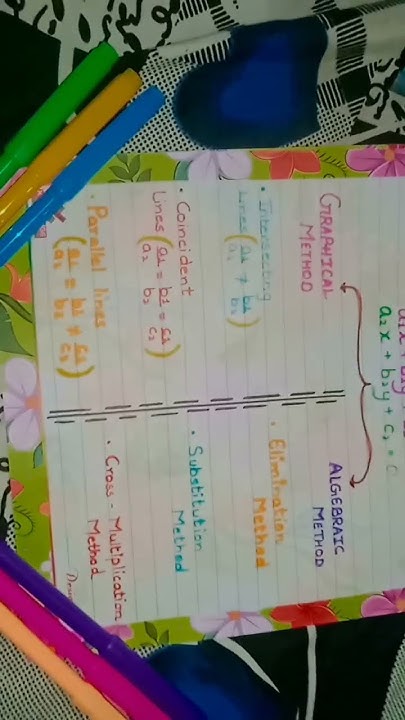 a₂x + b₂y + c₂ =
GRAPHICAL
METHOD
• Intersecting
Lines (a₁/a₂ ≠ b₁/b₂)
• Coincident
Lines (a₁/a₂ = b₁/b₂ = c₁/c₂)
• Parallel lines
(a₁/a₂ = b₁/b₂ ≠ c₁/c₂)
ALGEBRAIC
METHOD
• Elimination
Method
• Substitution
Method
• Cross - Multiplication
Method